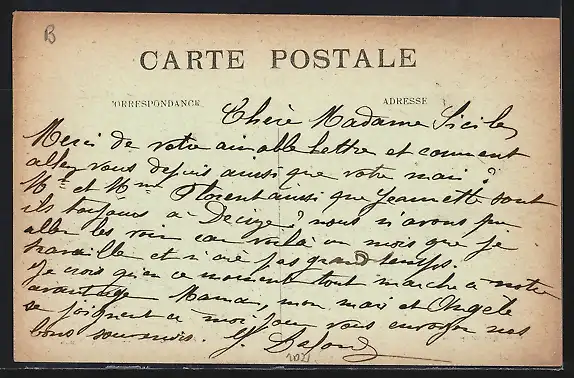 B
CARTE POSTALE
CORRESPONDANCE
ADRESSE
Chère Madame Sicile
Merci de votre aimable lettre et comment
allez vous depuis ainsi que votre mari ?
Mr et Mme Florent ainsi que Jeannette sont
ils toujours a Decize ? nous n'avons pu
aller les voir car voilà un mois que je
travaille et n'ai pas grand temps.
Je crois qu'en ce moment tout marche a notre
avantage Maman, mon mari et Angèle
se joignent a moi pour vous envoyer nos
bons souvenirs. G. Dafond